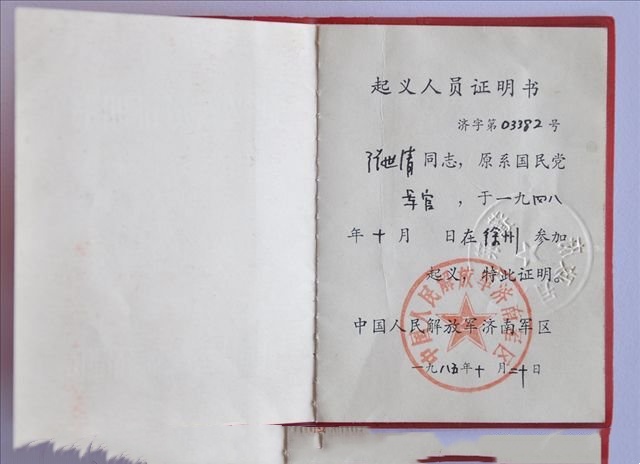 起义人员证明书
济字第03382号
张世清同志，原系国民党
军官，于一九四八
年十月 日在徐州参加
起义，特此证明。
中国人民解放军济南军区
一九八五年十月二十日
中国人民解放军济南军区